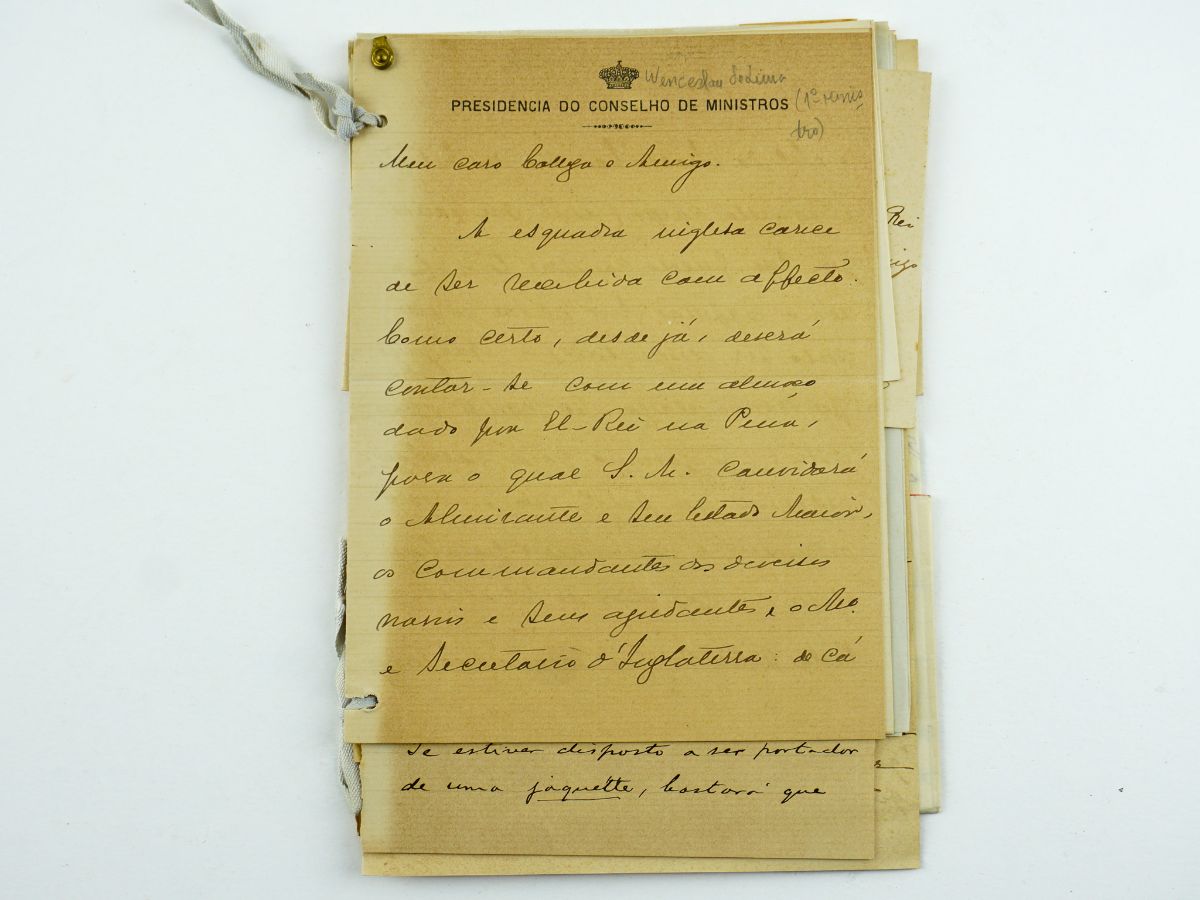 Wenceslau de Lima
PRESIDENCIA DO CONSELHO DE MINISTROS (1º minis-
tro)
Meu caro Collega e Amigo.
A esquadra ingleza carece
de ser recebida com affecto.
Como certo, desde já, deverá
contar-se com um almoço
dado por El-Rei na Pena,
para o qual S. M. convidará
o Almirante e seu Estado Maior,
os Commandantes dos diversos
navios e seus ajudantes, e o Mo.
e Secretario d'Inglaterra: de cá
Se estiver disposto a ser portador
de uma jaquétte, bastará que
Rei